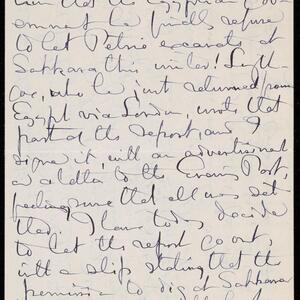 tian that the Egyptian Gov-
ernment he finally refuse
to let Petrie excavate at
Sakkara this winter! Light-
who he just returned from
Egypt via London, wrote that
part of the report, and I
signed it with an
as a letter to the Evening Post,
feeling sure that all was set
tled. I have today decided
to let the report go out,
with a slip stating that the
permission to dig at Sakkara